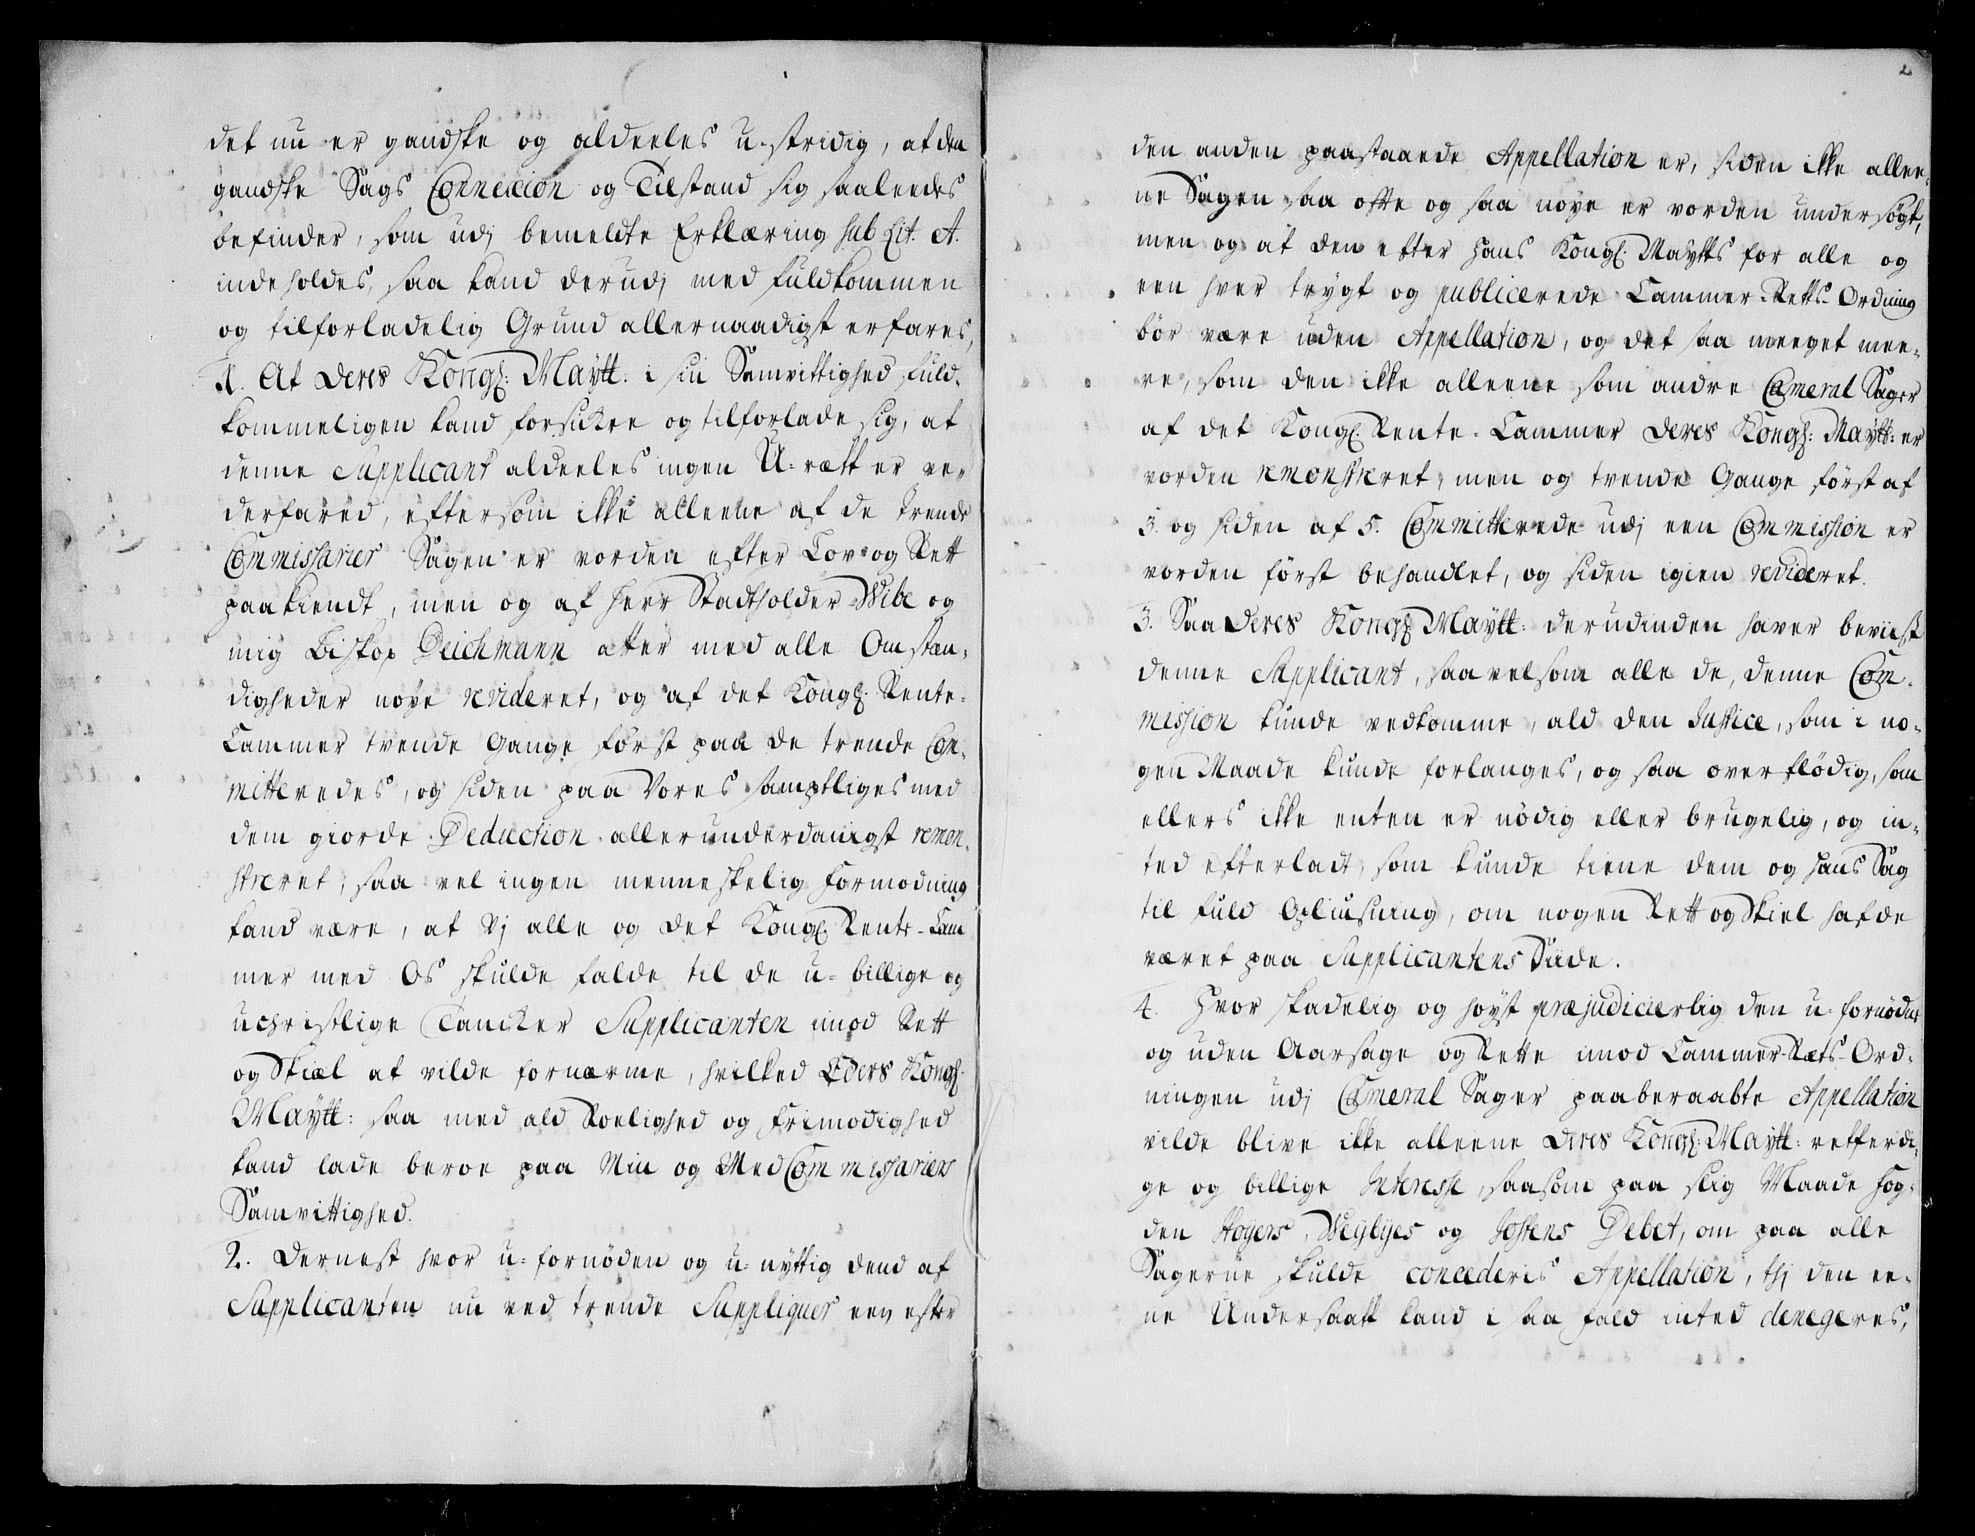 det nu er gandske og aldeeles u-stridig, at den
gandske Sags Connexion og Tilstand sig saaleedes
befinder, som udj bemeldte Erklæring sub Lit. A.
indeholdes, saa kand derudj med fuldkommen
og tilforladelig Grund allernaadigst erfares,
1. At Deres Kongl: Maytt: i sin Samvittighed fuld-
kommeligen kand forsickre og tilforlade sig, at
denne Supplicant aldeeles ingen U-rætt er ve-
derfared, eftersom ikke alleene af de trende
Commissarier Sagen er vorden efter Lov og Rett
paakiendt, men og af Herr Stadtholder Wibe og
mig Biskop Deichmann atter med alle Omstæn-
digheder nøye revideret, og af det Kongl: Rente-
Cammer tvende Gange først paa de trende Com-
mitteredes, og siden paa Vores samptliges med
dem giorde Deduction allerunderdanigst remon-
streret, saa vel ingen menneskelig Formodning
kand være, at Vj alle og det Kongl: Rente-Cam
mer med Os skulde falde til de u-billige og
uchristlige Tancker Supplicanten imod Rett
og Skiæl at vilde fornærme, hvilked Eders Kongl:
Maytt: saa med ald Roelighed og Frimodighed
kand lade beroe paa Min og Med Commissariers
Samvittighed.
2. Dernest hvor u-fornøden og u-nyttig dend af
Supplicanten nu ved trende Suppliquer een efter
2
den anden paastaaede Appellation er, siden ikke allee-
ne Sagen saa offte og saa nøye er vorden undersøgt,
men og at den efter Hans Kongl: Maytts for alle og
een hver trygt og publicerede Cammer-Retts-Ordning
bör være uden Appellation, og det saa meeget mee-
re, som den ikke alleene som andre Cameral Sager
af det Kongl: Rente-Cammer Deres Kongl: Maytt: er
vorden remonstreret, men og tvende Gange først af
3. og siden af 5. Committerede udj een Commission er
vorden først behandlet, og siden igien revideret.
3. Saa Deres Kongl: Maytt: derudinden haver beviist
denne Supplicant, saavelsom alle de, denne Com-
mission kunde vedkomme, ald den Justice, som i no-
gen Maade kunde forlanges, og saa overflödig, som
ellers ikke enten er nödig eller brugelig, og in-
ted efterladt, som kunde tiene dem og Hans Sag
til fuld Opliusning, om nogen Rett og Skiel hafde
været paa Supplicantens Siide.
4. Hvor skadelig og høyst præjudicerlig den u-fornødne
og uden Aarsage og Rette imod Cammer-Retts-Ord-
ningen udj Cameral Sager paaberaabte Appellation
vilde blive ikke alleene Deres Kongl: Maytt: retferdi-
ge og billige Interesse, saasom paa slig Maade Fog-
den Høyers, Weylyes og Jostens Debet, om paa alle
Sagerne skulde concederis Appellation, thj den ee-
ne Undersaatt kand i saa fald inted denegeres,